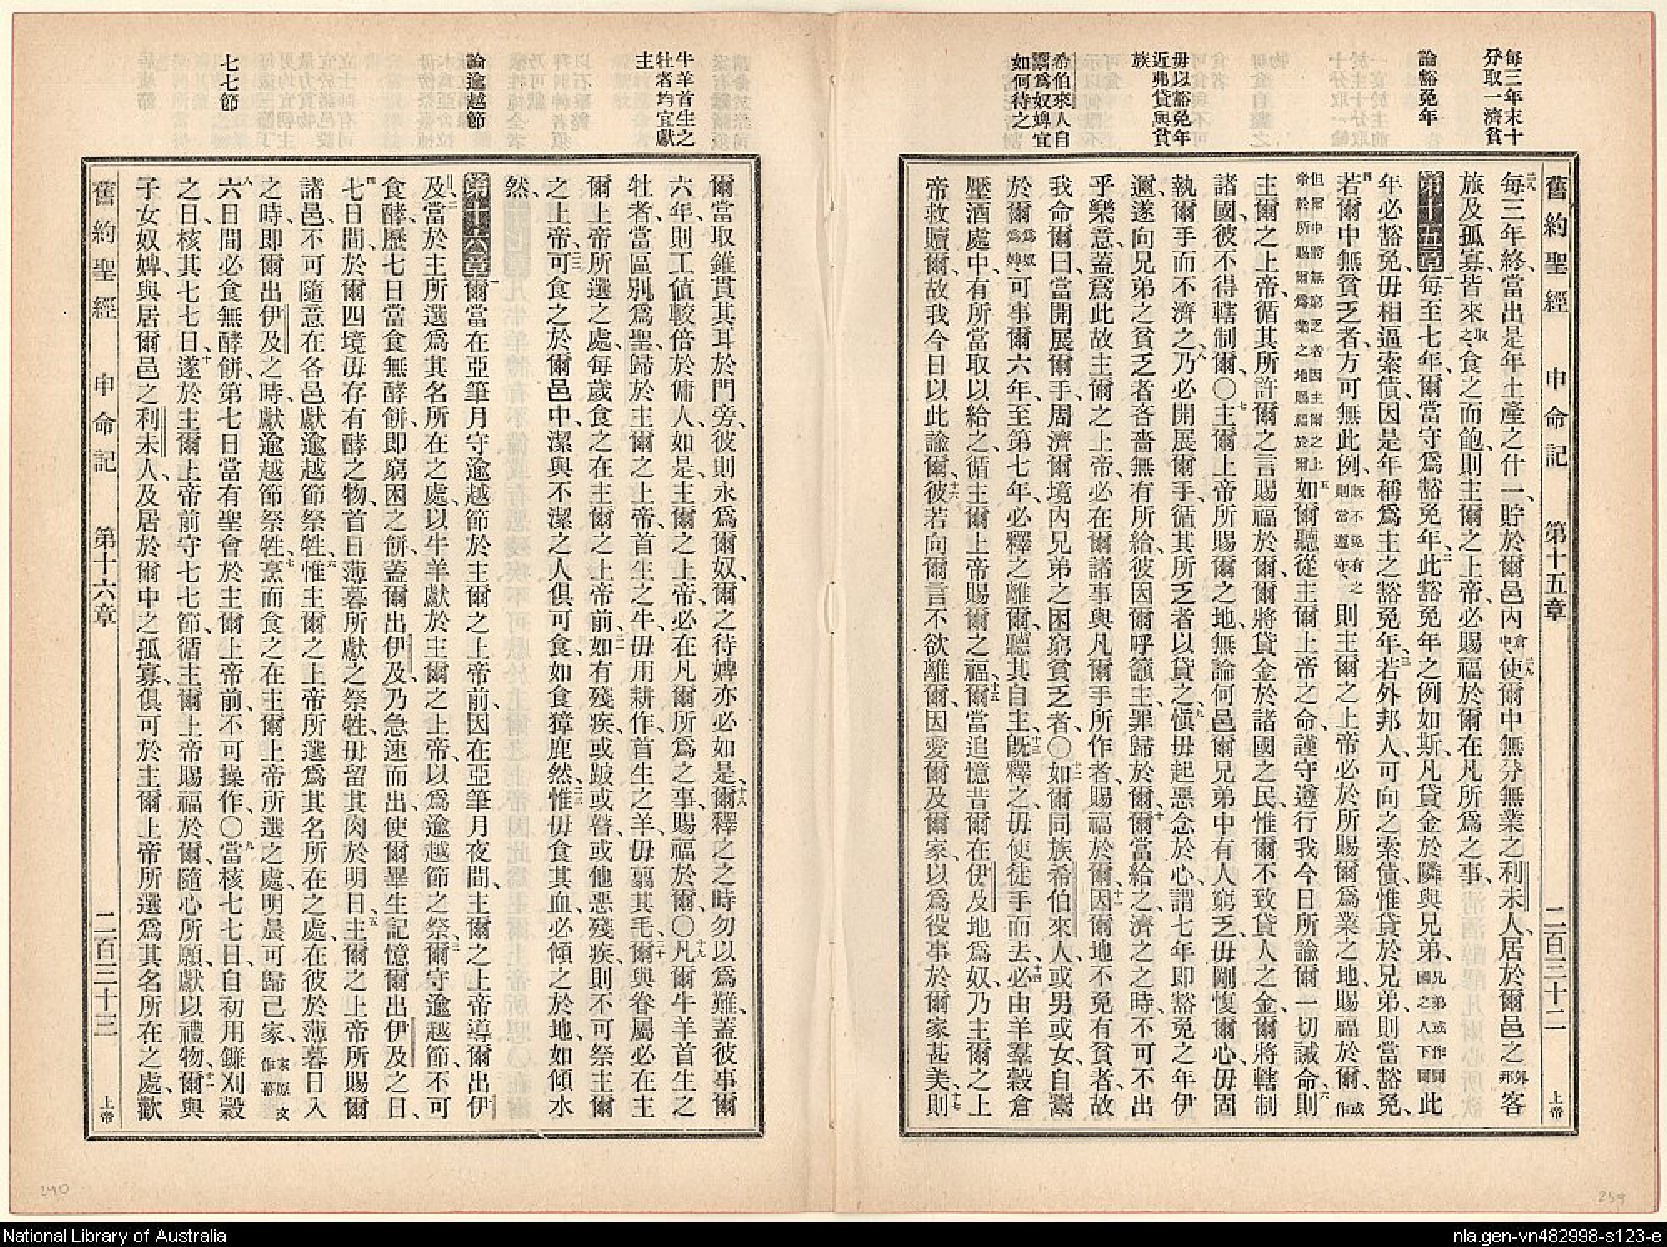 每三年末十
分取一濟貧
論豁免年
毋以豁免年
近弗貸與貧
族
希伯來人自
鬻爲奴婢宜
如何待之
舊約聖經 申命記 第十五章 二百三十二 上帝
每三年終、當出是年土產之什一、貯於爾邑內、倉中使爾中無分無業之利未人、居於爾邑之外邦客
旅及孤寡、皆來取之食之而飽、則主爾之上帝必賜福於爾在凡所爲之事、
第十五章 每至七年、爾當守爲豁免年、此豁免年之例如斯、凡貸金於隣與兄弟、兄弟或作同國之人下同此
年必豁免、毋相逼索債、因是年稱爲主之豁免年、若外邦人、可向之索債、惟貸於兄弟、則當豁免、
若爾中無貧乏者、方可無此例、既不免有之則當遵守、則主爾之上帝必於所賜爾爲業之地、賜福於爾、或作
但爾中將無窮乏者因主爾之上帝於所賜爾爲業之地賜福於爾如爾聽從主爾上帝之命、謹守遵行我今日所諭爾一切誡命、則
主爾之上帝、循其所許爾之言、賜福於爾、爾將貸金於諸國之民、惟爾不致貸人之金、爾將轄制
諸國、彼不得轄制爾、〇主爾上帝所賜爾之地、無論何邑、爾兄弟中有人窮乏、毋剛愎爾心、毋固
執爾手而不濟之、乃必開展爾手、循其所乏者以貸之、愼毋起惡念於心、謂七年卽豁免之年伊
邇、遂向兄弟之貧乏者吝嗇、無有所給、彼因爾呼籲主、罪歸於爾、爾當給之、濟之之時、不可不出
乎樂意、蓋爲此故、主爾之上帝、必在爾諸事、與凡爾手所作者、賜福於爾、因爾地不免有貧者、故
我命爾曰、當開展爾手、周濟爾境內兄弟之困窮貧乏者、〇如爾同族希伯來人、或男或女、自鬻
於爾、爲奴爲婢、可事爾六年、至第七年必釋之離爾、聽其自主、旣釋之、毋使徒手而去、必由羊羣穀倉
壓酒處中、有所當取以給之、循主爾上帝賜爾之福、爾當追憶昔爾在伊及地爲奴、乃主爾之上
帝救贖爾、故我今日以此諭爾、彼若向爾言不欲離爾、因愛爾及爾家、以爲役事於爾家甚美、則
牛羊首生之
牡者均宜獻
主
論逾越節
七七節
爾當取錐貫其耳於門旁、彼則永爲爾奴、爾之待婢亦必如是、爾釋之之時、勿以爲難、蓋彼事爾
六年、則工値較倍於傭人、如是、主爾之上帝必在凡爾所爲之事、賜福於爾、〇凡爾牛羊首生之
牡者、當區別爲聖、歸於主爾之上帝、首生之牛、毋用耕作、首生之羊、毋翦其毛、爾與眷屬必在主
爾上帝所選之處、每歲食之、在主爾之上帝前、如有殘疾、或跛或瞽、或他惡殘疾、則不可祭主爾
之上帝、可食之於爾邑中、潔與不潔之人俱可食、如食獐鹿然、惟毋食其血、必傾之於地、如傾水
然、
第十六章 爾當在亞筆月守逾越節於主爾之上帝前、因在亞筆月夜間、主爾之上帝導爾出伊
及、當於主所選爲其名所在之處、以牛羊獻於主爾之上帝、以爲逾越節之祭、爾守逾越節、不可
食酵、歷七日當食無酵餅、卽窮困之餅、蓋爾出伊及、乃急速而出、使爾畢生記憶爾出伊及之日、
七日間、於爾四境毋存有酵之物、首日薄暮所獻之祭牲、毋留其肉於明日、主爾之上帝所賜爾
諸邑、不可隨意在各邑獻逾越節祭牲、惟主爾之上帝所選爲其名所在之處、在彼於薄暮日入
之時、卽爾出伊及之時、獻逾越節祭牲、烹而食之、在主爾上帝所選之處、明晨可歸己家、家原文作幕
六日間必食無酵餅、第七日當有聖會於主爾上帝前、不可操作、〇當核七七日、自初用鐮刈穀
之日、核其七七日、遂於主爾上帝前守七七節、循主爾上帝賜福於爾、隨心所願、獻以禮物、爾與
子女奴婢、與居爾邑之利未人、及居於爾中之孤寡、俱可於主爾上帝所選爲其名所在之處、歡
舊約聖經 申命記 第十六章 二百三十三 上帝
240
239
National Library of Australia
nla.gen-vn482998-s123-e